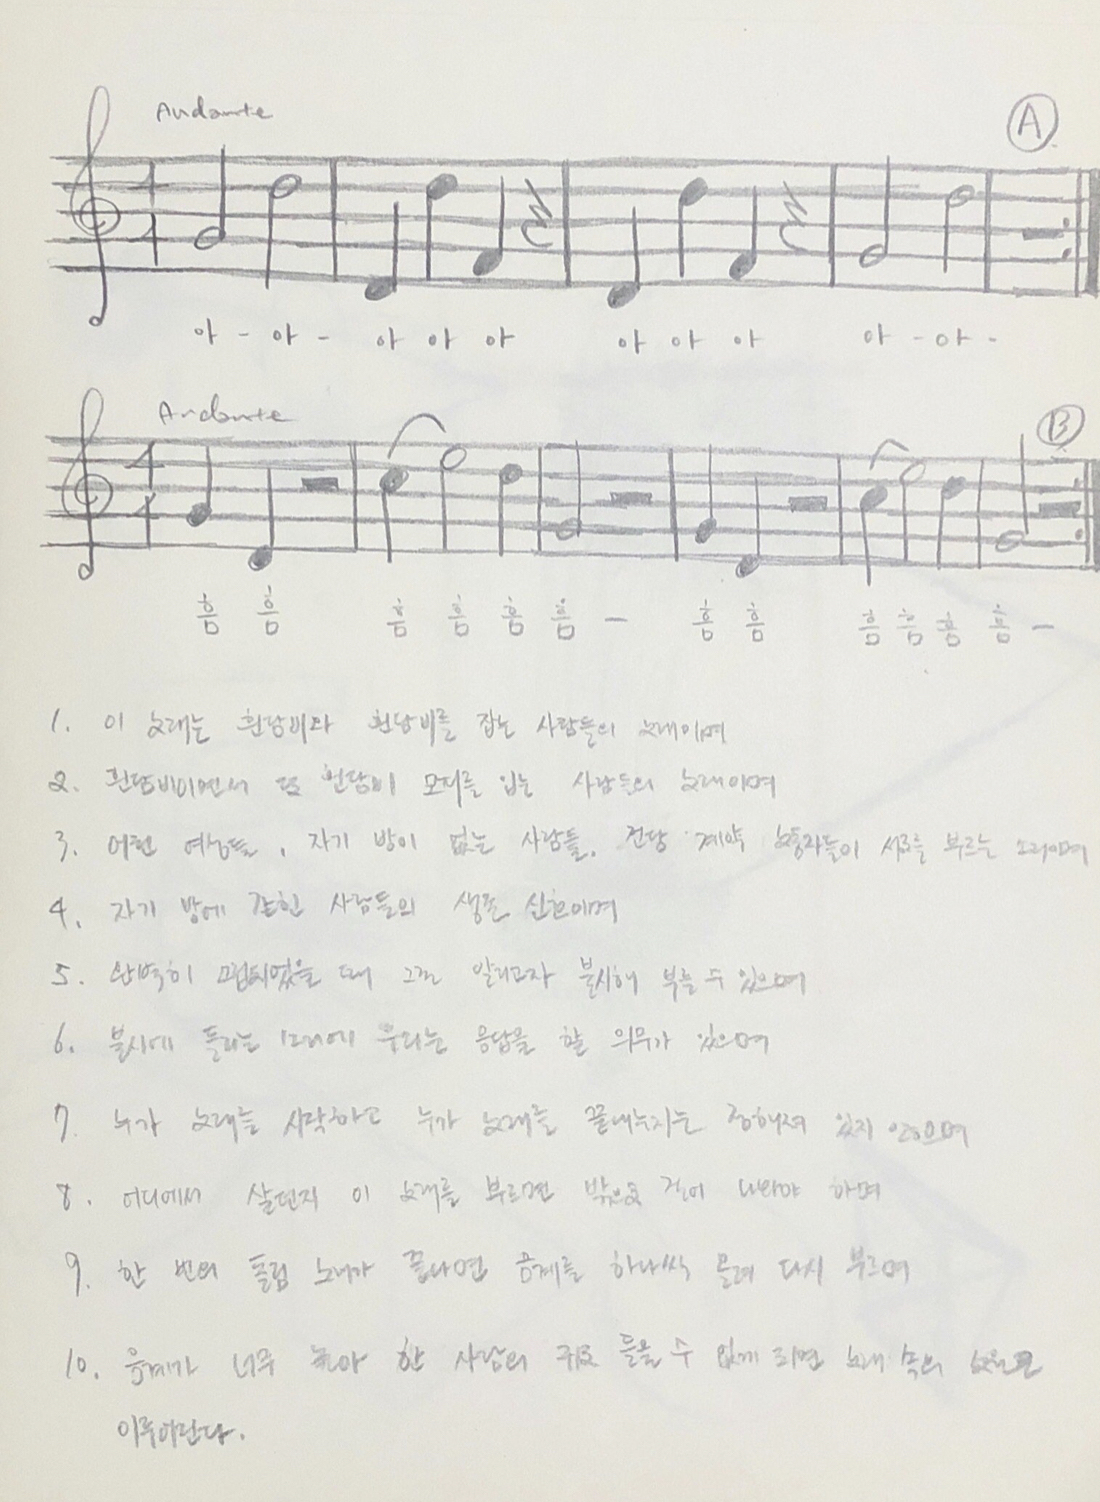 Andante
A
4
4
아 - 아 - 아 아 아 아 아 아 아 - 아 -
Andante
B
4
4
흠 흠 흠 흠 흠 흠 - 흠 흠 흠 흠 흠 흠 -
1. 이 노래는 흰담비와 흰담비를 잡는 사람들의 노래이며
2. 흰담비이면서 또 흰담비 모피를 입는 사람들의 노래이며
3. 어린 여성들, 자기 방이 없는 사람들, 건당 계약 노동자들이 서로를 부르는 소리이며
4. 자기 방에 갇힌 사람들의 생존 신호이며
5. 완벽히 고립되었을 때 그걸 알리고자 불시에 부를 수 있으며
6. 불시에 들리는 소리에 우리는 응답을 할 의무가 있으며
7. 누가 노래를 시작하고 누가 노래를 끝내는지는 정해져 있지 않으며
8. 어디에서 살던지 이 노래를 부르면 밖으로 걸어 나와야 하며
9. 한 번의 돌림 노래가 끝나면 음계를 하나씩 올려 다시 부르며
10. 음계가 너무 높아 한 사람의 귀로 들을 수 없게 되면 노래 속의
이루어진다.